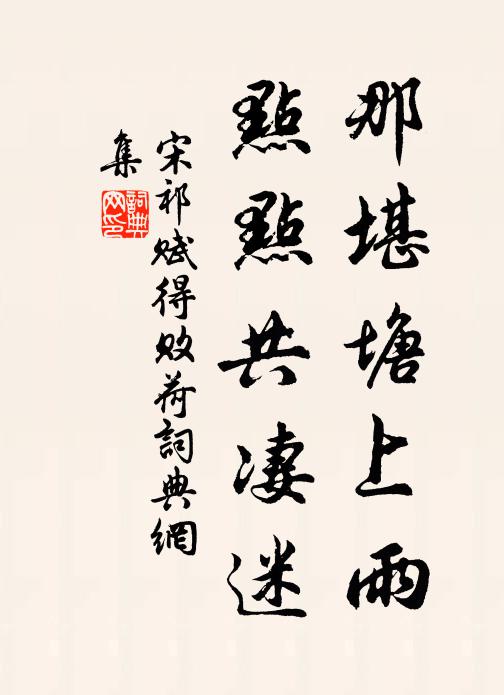 那堪塘上雨
點點共淒迷
宋祁賦得敗荷詞典網
集
詞典
网印